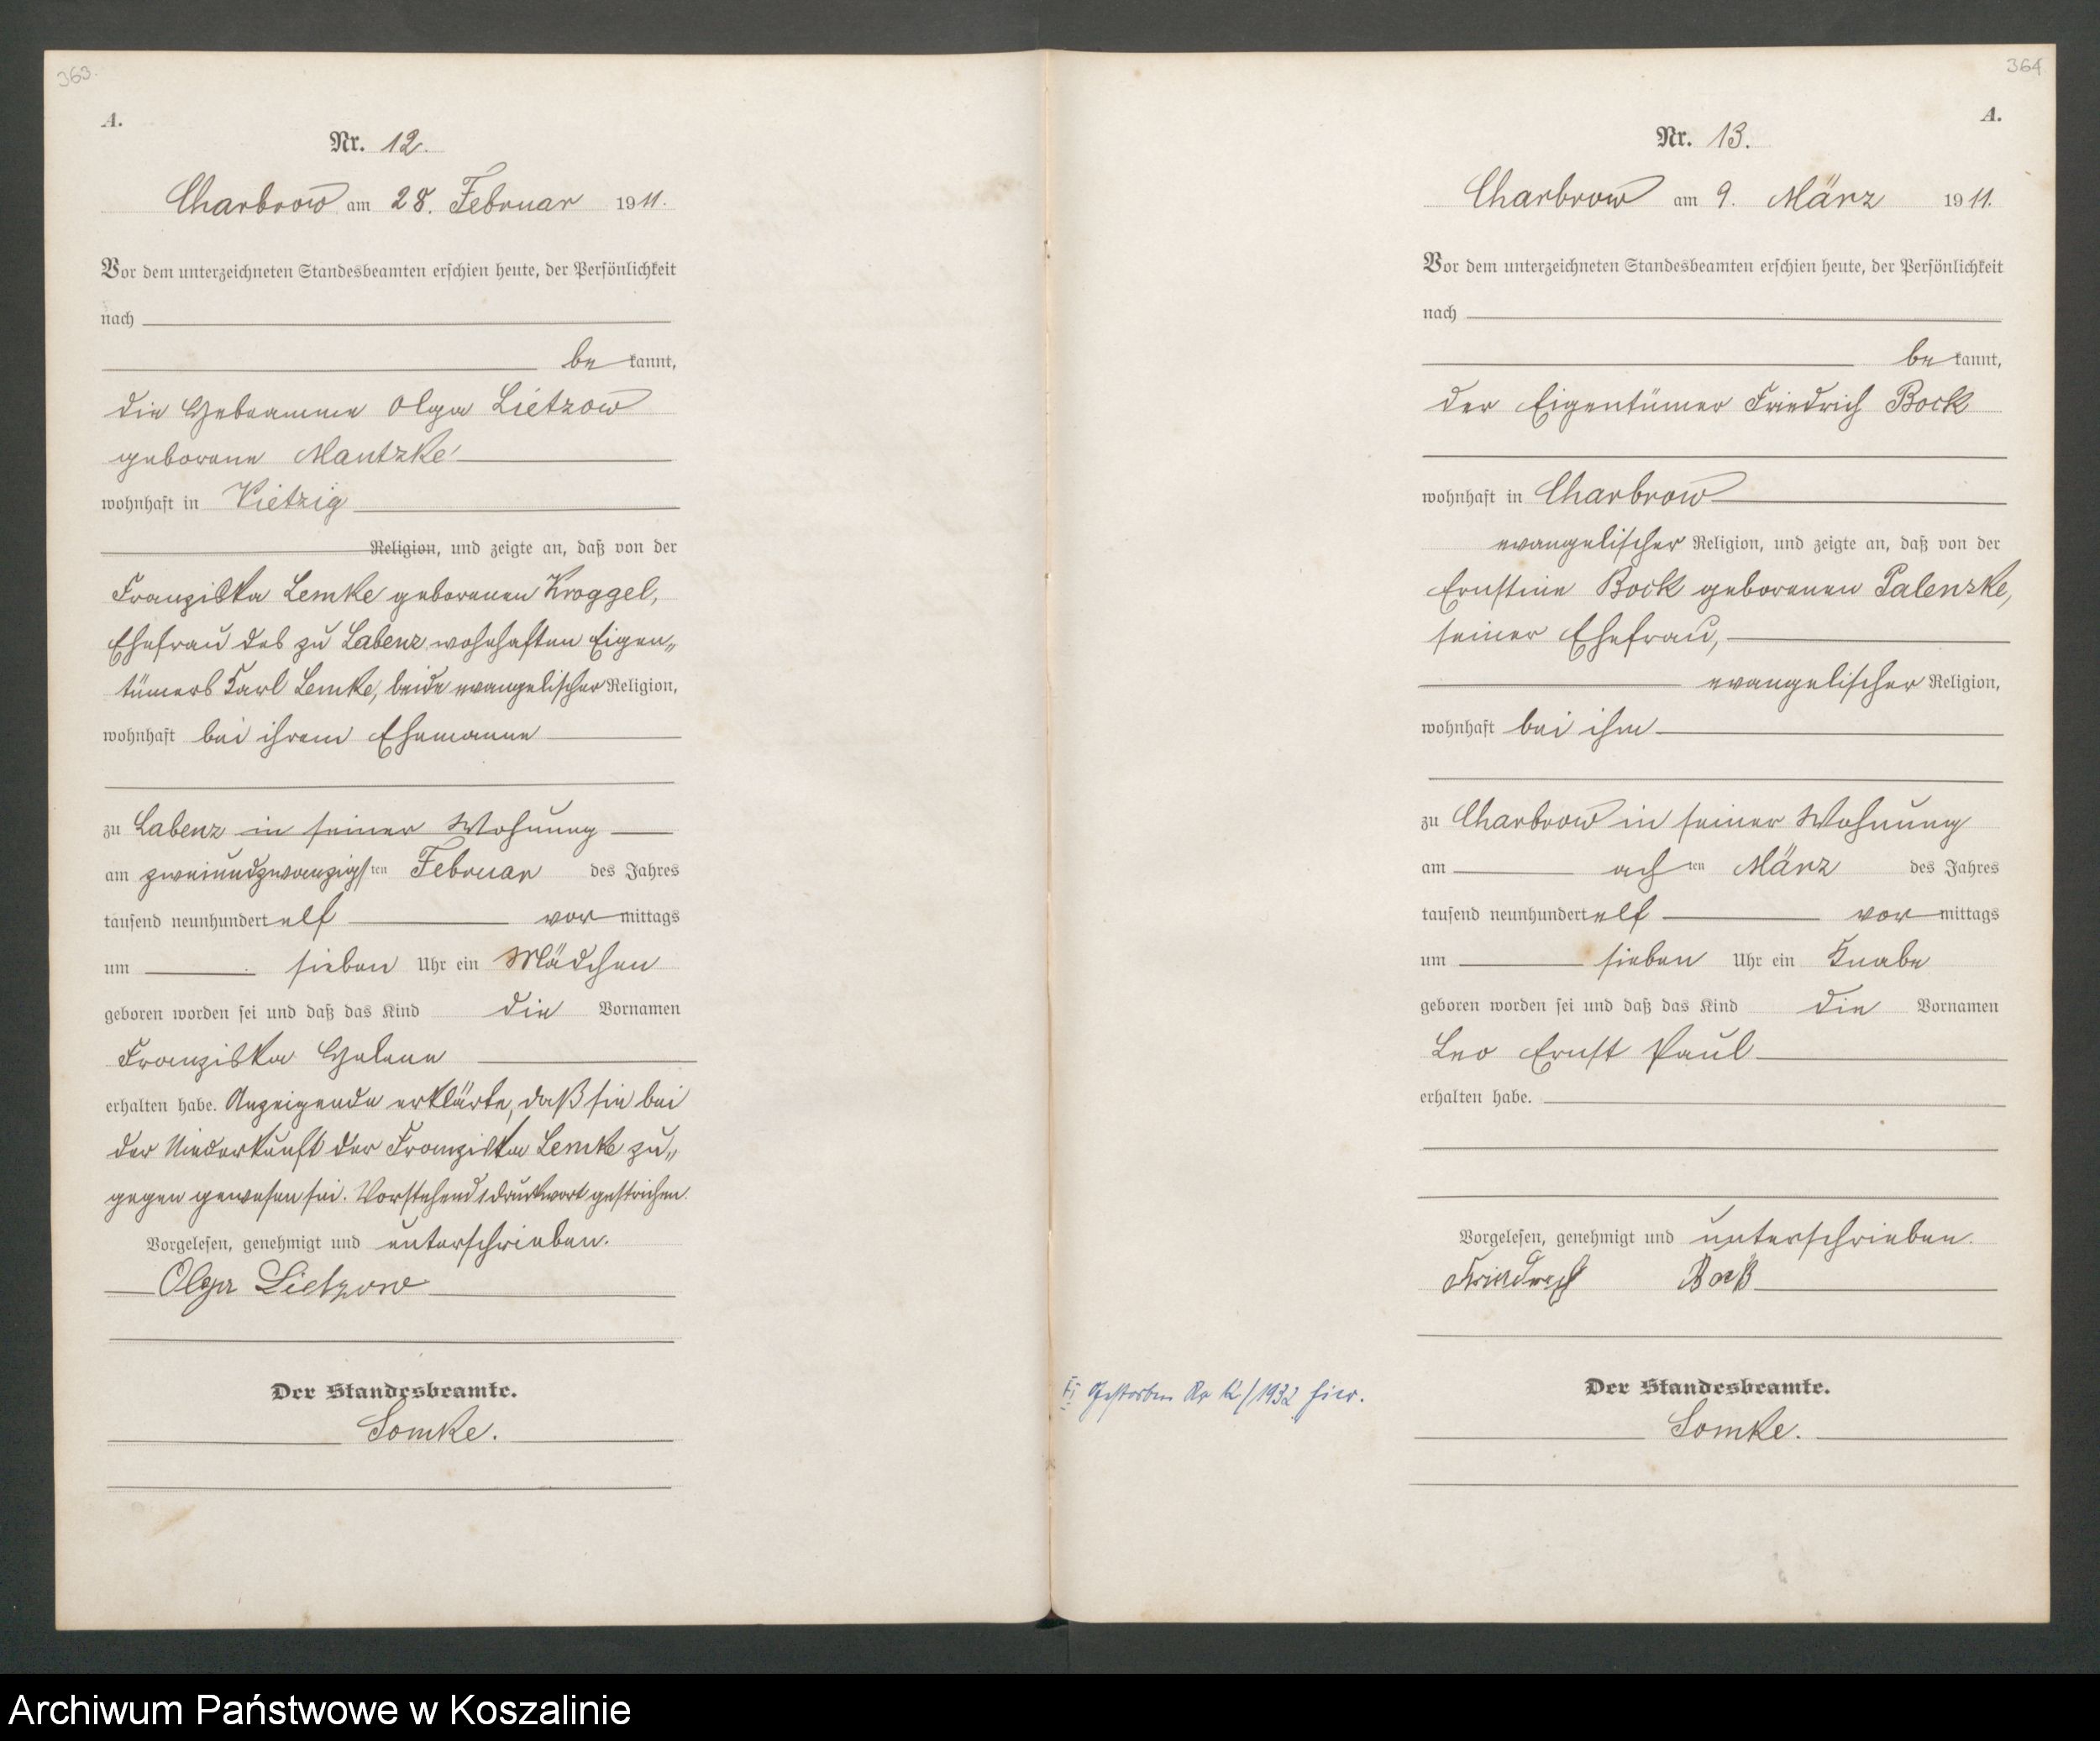 363.
A.
Nr. 12.
Charbrow am 28. Februar 1911.
Vor dem unterzeichneten Standesbeamten erschien heute, der Persönlichkeit
nach
be kannt,
die Hebeamme Olga Lietzow
geborene Mantzke
wohnhaft in Vietzig
Religion, und zeigte an, daß von der
Franziska Lemke geborenen Kroggel,
Ehefrau des zu Labenz wohnhaften Eigen„
tümers Karl Lemke, beide evangelischer Religion,
wohnhaft bei ihrem Ehemanne
zu Labenz in seiner Wohnung
am zweiundzwanzigsten Februar des Jahres
tausend neunhundert elf vor mittags
um sieben Uhr ein Mädchen
geboren worden sei und daß das Kind die Vornamen
Franziska Helene
erhalten habe. Anzeigende erklärte, daß sie bei
der Niederkunft der Franziska Lemke zu„
gegen gewesen sei. Vorstehend 1 Druckwort gestrichen.
Vorgelesen, genehmigt und unterschrieben.
Olga Lietzow
Der Standesbeamte.
Somke.
364
A.
Nr. 13.
Charbrow am 9. März 1911.
Vor dem unterzeichneten Standesbeamten erschien heute, der Persönlichkeit
nach
be kannt,
der Eigentümer Friedrich Bock
wohnhaft in Charbrow
evangelischer Religion, und zeigte an, daß von der
Ernstine Bock geborenen Palenske,
seiner Ehefrau,
evangelischer Religion,
wohnhaft bei ihm
zu Charbrow in seiner Wohnung
am achten März des Jahres
tausend neunhundert elf vor mittags
um sieben Uhr ein Knabe
geboren worden sei und daß das Kind die Vornamen
Leo Ernst Paul
erhalten habe.
Vorgelesen, genehmigt und unterschrieben.
Friedrich Bock
Gestorben 1932 hier.
Der Standesbeamte.
Somke.
Archiwum Państwowe w Koszalinie